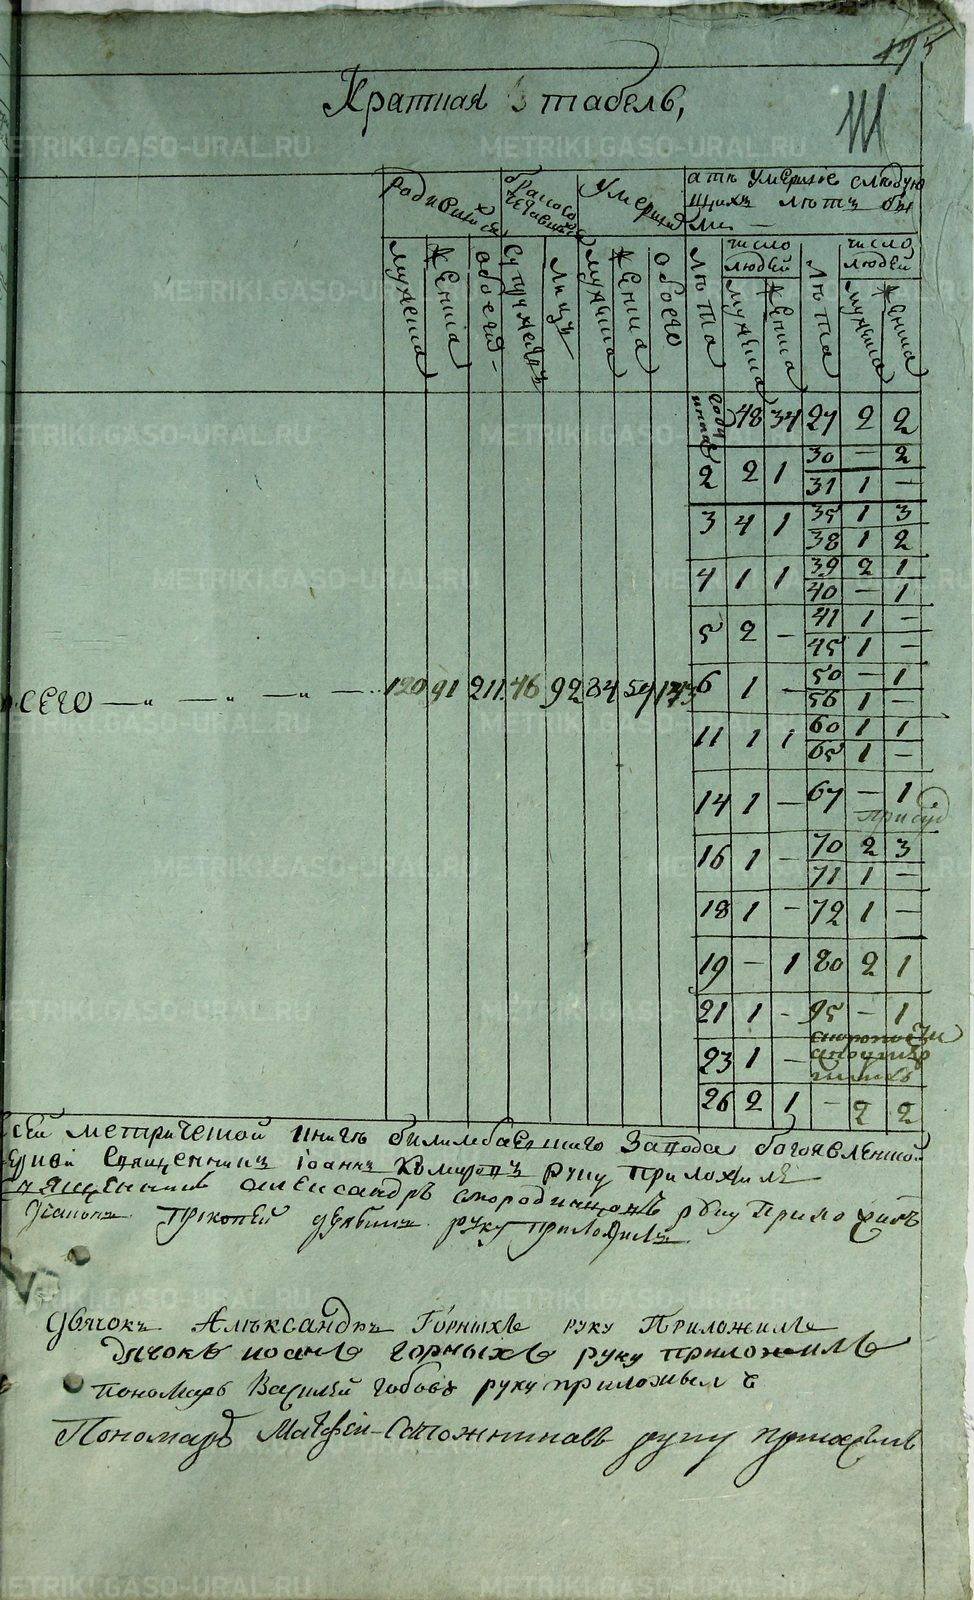 Краткая табель,
родившихся
умерших
а те умершие следую
щихъ летъ бы
ли —
мужеска
женска
обоего
супружествъ
лицъ
мужеска
женска
обоего
лета
число людей
мужеска
женска
лета
число людей
мужеска
женска
48 34 27 2 2
2 2 1 30 — 2
31 1 —
3 4 1 35 1 3
38 1 2
4 1 1 39 2 1
40 — 1
5 2 — 41 1 —
45 1 —
всего — „ — „ — „ — 120 91 211 46 92 84 54
6 1 — 50 — 1
56 1 —
11 1 1 60 1 1
65 1 —
14 1 — 67 — 1
16 1 — 70 2 3
71 1 —
18 1 — 72 1 —
19 — 1 80 2 1
21 1 — 95 — 1
23 1 —
26 2 1 — 2 2
сей метрической книге билимбаевскаго завода богоявленской
Священникъ Iоаннъ руку приложилъ
Священникъ александръ руку приложилъ
прокопей руку приложилъ
дьячокъ Алѣксандръ Горныхъ руку Приложилъ
Дьячокъ иоанъ горныхъ руку приложилъ
пономарь Василей гобовъ руку приложылъ
Пономарь Матфей Сапожниковъ руку приложилъ
METRIKI.GASO-URAL.RU